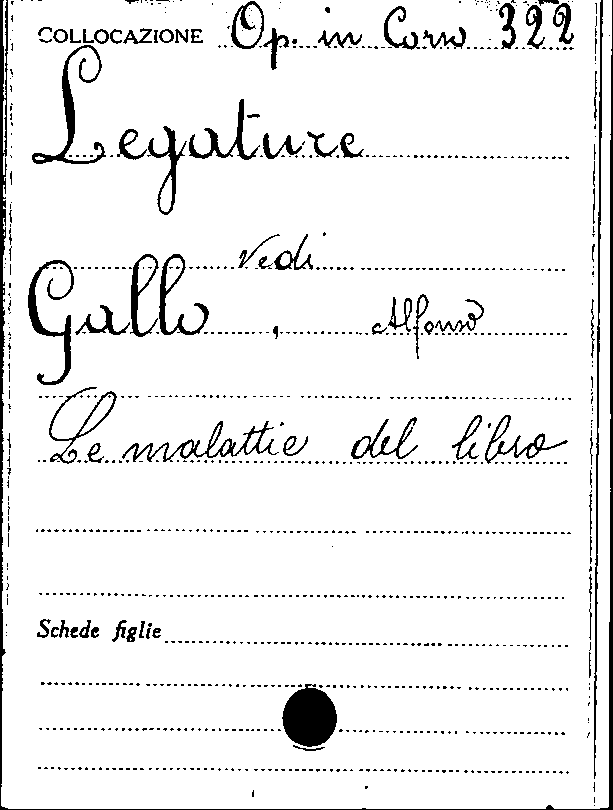 COLLOCAZIONE Op. in Corso 322
Legature
Vedi
Gallo, Alfonso
Le malattie del libro
Schede figlie